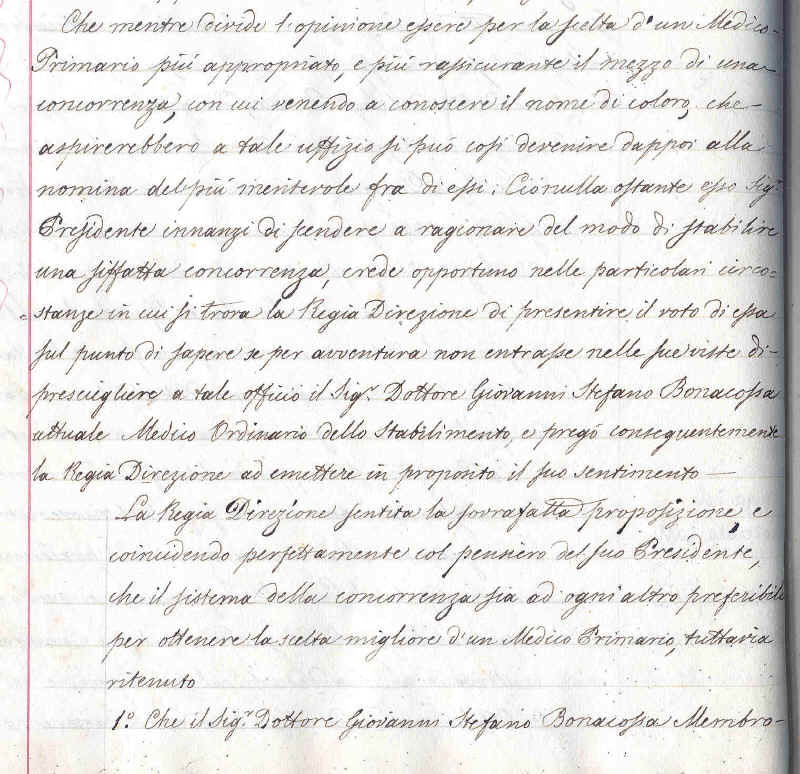 Che mentre divide l'opinione essere per la scelta d'un Medico-
Primario più appropriato, e più rassicurante il mezzo di una
concorrenza, con cui venendo a conoscere il nome di coloro, che-
aspirerebbero a tale uffizio si può così devenire dappoi alla
nomina del più meritevole fra di essi; Ciònulla ostante esso Sigr.
Presidente innanzi di scendere a ragionare del modo di stabilire
una siffatta concorrenza, crede opportuno nelle particolari circo-
-stanze in cui si trova la Regia Direzione di presentire il voto di essa
sul punto di sapere se per avventura non entrasse nelle sue viste di-
presciegliere a tale officio il Sigr. Dottore Giovanni Stefano Bonacossa
attuale Medico Ordinario dello Stabilimento, e pregò conseguentemente
la Regia Direzione ad emettere in proposito il suo sentimento —
La Regia Direzione sentita la sovrafatta proposizione, e
coincidendo perfettamente col pensiero del suo Presidente,
che il sistema della concorrenza sia ad ogni altro preferibile
per ottenere la scelta migliore d'un Medico Primario, tuttavia
ritenuto
1.º Che il Sigr. Dottore Giovanni Stefano Bonacossa Membro-